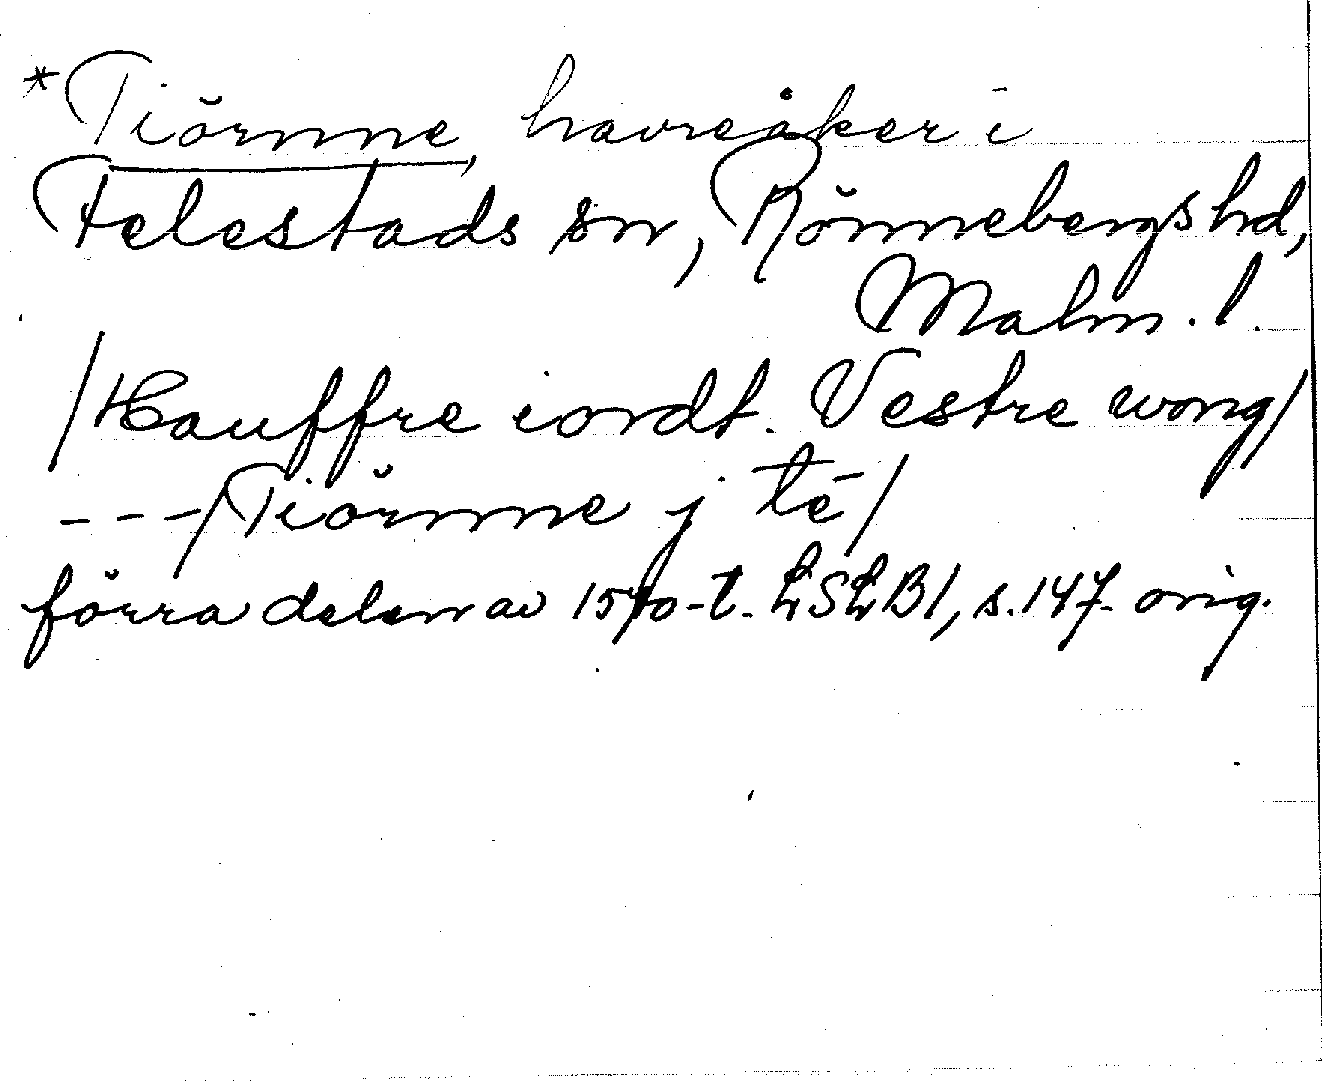 *Tiörnne, havreåker i
Felestads sn, Rönnebergs hd,
Malm. l.
/Hauffre iordt. Vestre wong/
---/Tiörnne j té/
förra delen av 1570-t. LSLB1, s.147. orig.